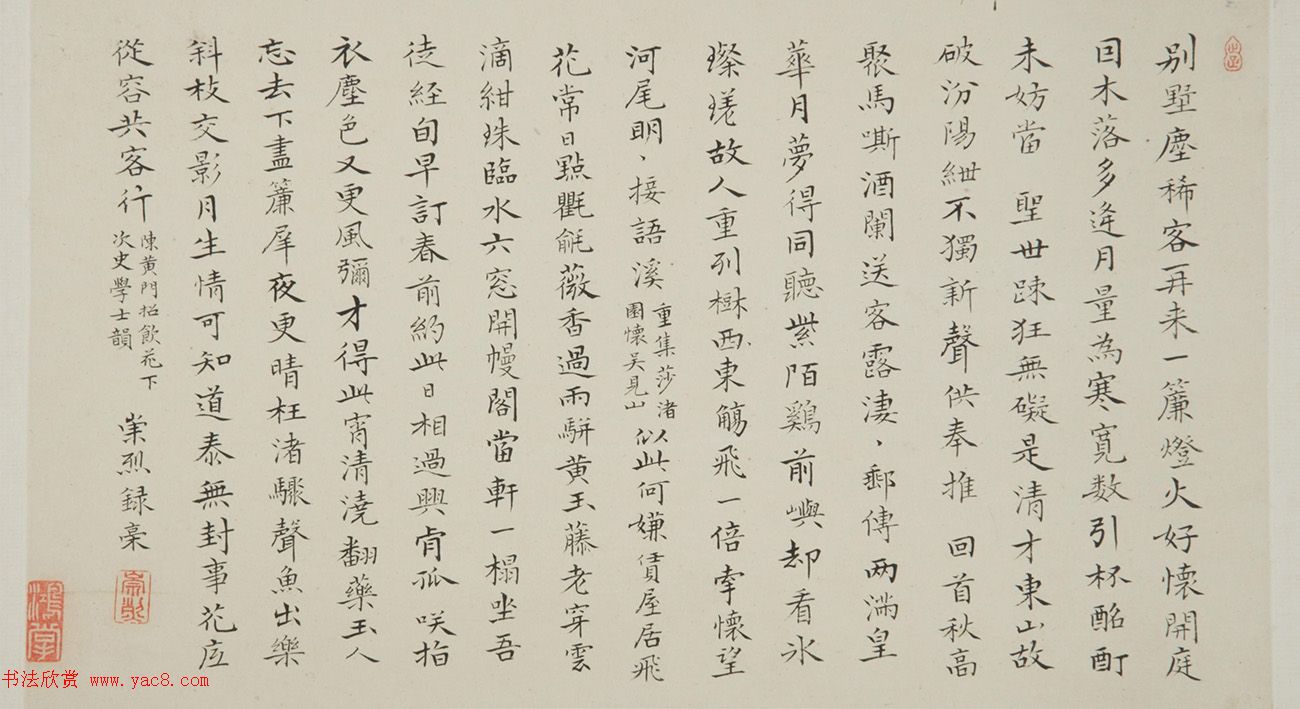 別墅塵稀客再来一簾燈火好懷開庭
因木落多逢月量為寒寬数引杯酩酊
未妨當 聖世踈狂無礙是清才東山故
破汾陽紲不獨新聲供奉推 回首秋高
聚馬嘶酒闌送客露淒、郵傳两滿皇
華月夢得同聽紫陌鷄前嶼却看氷
璨瑳故人重列樹西東觴飛一倍牽懷望
河尾明、接語溪 重集莎渚
園懷吴見山 似此何嫌賃屋居飛
花常日點氍毹薇香過雨駢黄玉藤老穿雲
滴紺珠臨水六窓開幔閣當軒一榻坐吾
徒経旬早訂春前約此日相過興肯孤 咲指
衣塵色又更風彌才得此宵清澆翻藥玉人
忘去下盡簾犀夜更晴枉渚驟聲魚出樂
斜枝交影月生情可知道泰無封事花底
從容共客行 陳黄門招飲花下
次史學士韻 崇烈録稾
崇烈
書法欣赏 www.yac8.com